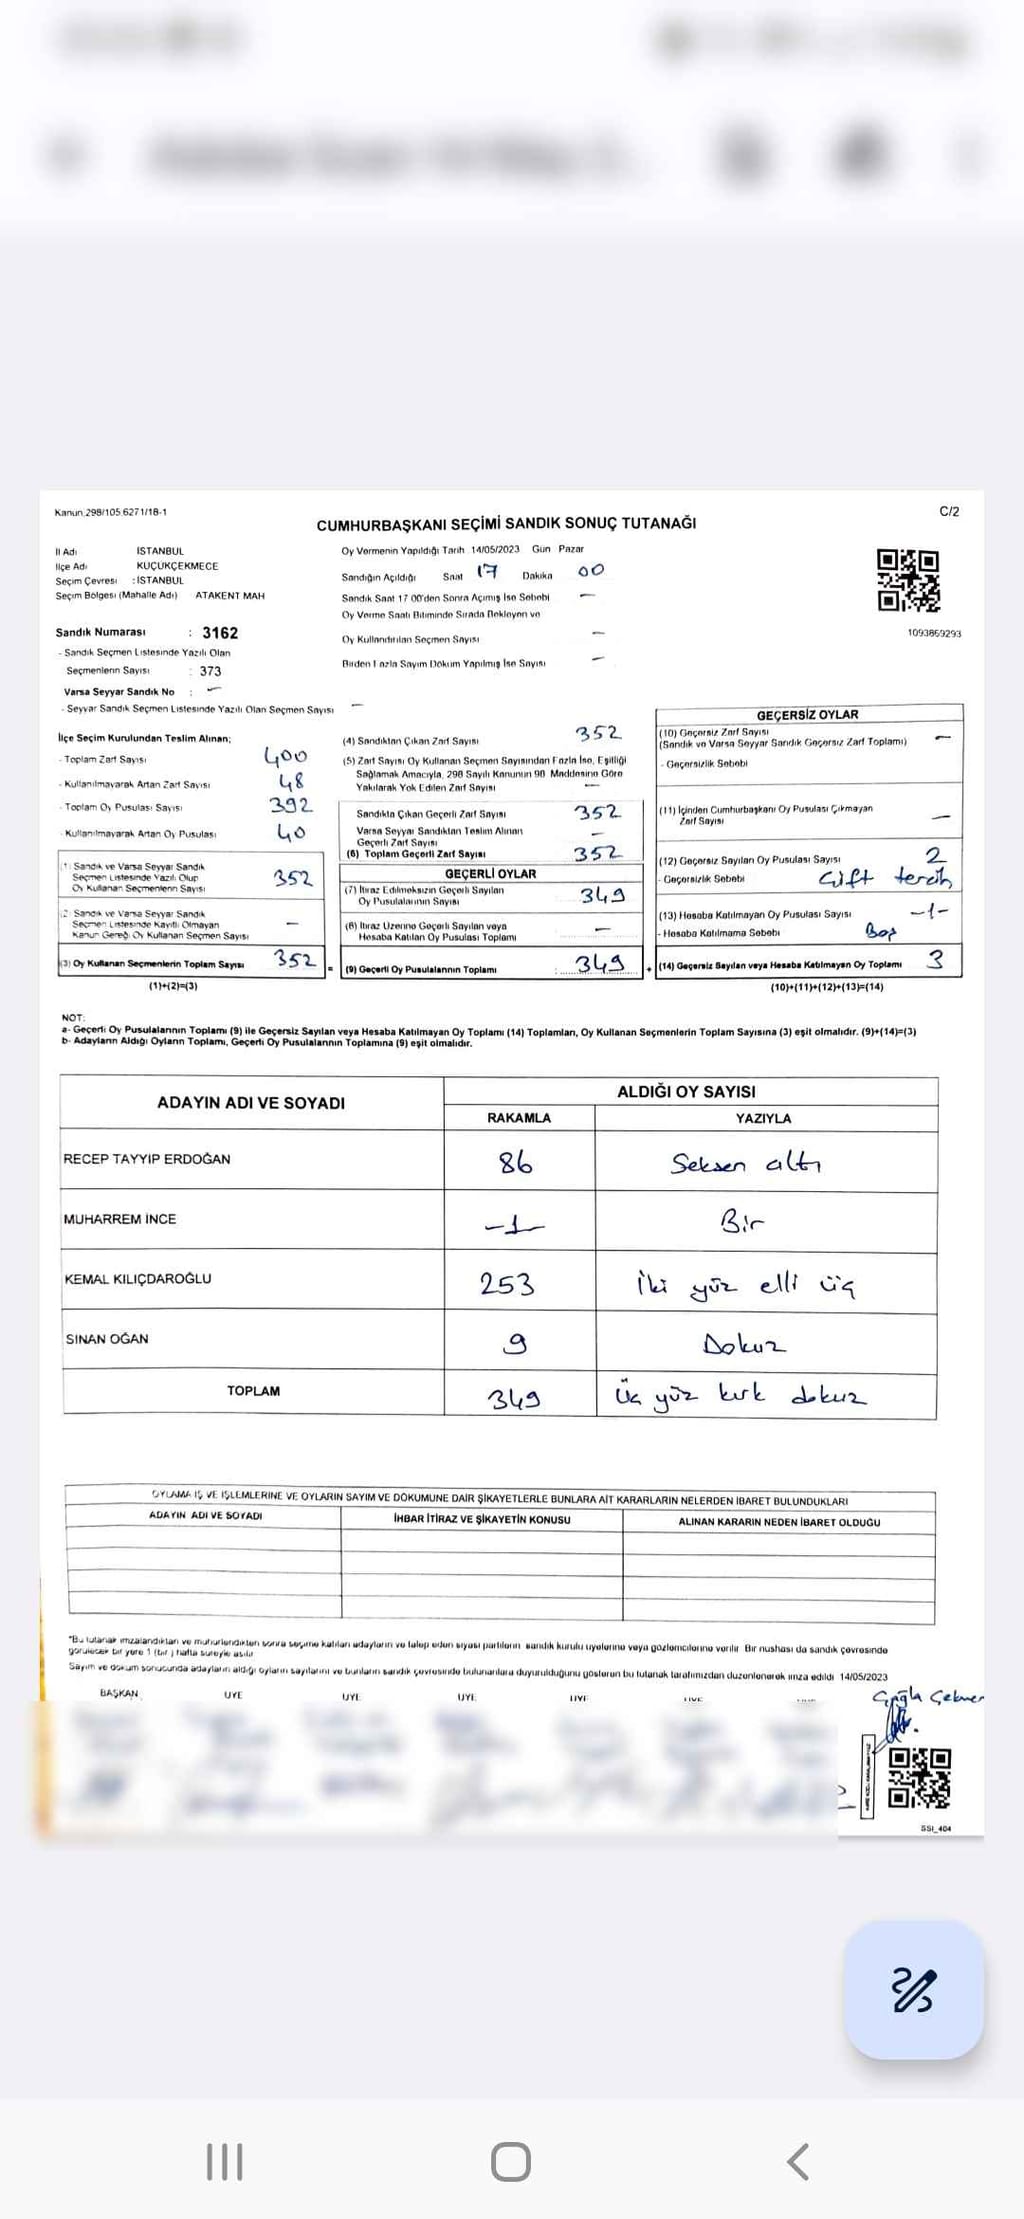 Kanun:298/105 6271/18-1
C/2
CUMHURBAŞKANI SEÇİMİ SANDIK SONUÇ TUTANAĞI
İl Adı İSTANBUL
İlçe Adı KÜÇÜKÇEKMECE
Seçim Çevresi : İSTANBUL
Seçim Bölgesi (Mahalle Adı) ATAKENT MAH
Oy Vermenin Yapıldığı Tarih 14/05/2023 Gün Pazar
Sandığın Açıldığı Saat 17 Dakika 00
Sandık Saat 17 00'den Sonra Açımış İse Sebebi —
Oy Verme Saati Bitiminde Sırada Bekleyen ve
Oy Kullandırılan Seçmen Sayısı —
Birden Fazla Sayım Döküm Yapılmış İse Sayısı —
1093869293
Sandık Numarası : 3162
- Sandık Seçmen Listesinde Yazılı Olan
Seçmenlerin Sayısı : 373
Varsa Seyyar Sandık No : —
- Seyyar Sandık Seçmen Listesinde Yazılı Olan Seçmen Sayısı —
İlçe Seçim Kurulundan Teslim Alınan;
- Toplam Zarf Sayısı 400
- Kullanılmayarak Artan Zarf Sayısı 48
- Toplam Oy Pusulası Sayısı 392
- Kullanılmayarak Artan Oy Pusulası 40
(1) Sandık ve Varsa Seyyar Sandık
Seçmen Listesinde Yazılı Olup
Oy Kullanan Seçmenlerin Sayısı 352
(2) Sandık ve Varsa Seyyar Sandık
Seçmen Listesinde Kayıtlı Olmayan
Kanun Gereği Oy Kullanan Seçmen Sayısı —
(3) Oy Kullanan Seçmenlerin Toplam Sayısı 352 =
(1)+(2)=(3)
(4) Sandıktan Çıkan Zarf Sayısı 352
(5) Zarf Sayısı Oy Kullanan Seçmen Sayısından Fazla İse, Eşitliği
Sağlamak Amacıyla, 298 Sayılı Kanunun 98 Maddesine Göre
Yakılarak Yok Edilen Zarf Sayısı —
Sandıkta Çıkan Geçerli Zarf Sayısı 352
Varsa Seyyar Sandıktan Teslim Alınan
Geçerli Zarf Sayısı —
(6) Toplam Geçerli Zarf Sayısı 352
GEÇERLİ OYLAR
(7) İtiraz Edilmeksizin Geçerli Sayılan
Oy Pusulalarının Sayısı 349
(8) İtiraz Üzerine Geçerli Sayılan veya
Hesaba Katılan Oy Pusulası Toplamı —
(9) Geçerli Oy Pusulalarının Toplamı : 349 +
GEÇERSİZ OYLAR
(10) Geçersiz Zarf Sayısı —
(Sandık ve Varsa Seyyar Sandık Geçersiz Zarf Toplamı)
- Geçersizlik Sebebi
(11) İçinden Cumhurbaşkanı Oy Pusulası Çıkmayan
Zarf Sayısı —
(12) Geçersiz Sayılan Oy Pusulası Sayısı 2
- Geçersizlik Sebebi Çift tercih
(13) Hesaba Katılmayan Oy Pusulası Sayısı -1-
- Hesaba Katılmama Sebebi Boş
(14) Geçersiz Sayılan veya Hesaba Katılmayan Oy Toplamı 3
(10)+(11)+(12)+(13)=(14)
NOT:
a- Geçerli Oy Pusulalarının Toplamı (9) ile Geçersiz Sayılan veya Hesaba Katılmayan Oy Toplamı (14) Toplamları, Oy Kullanan Seçmenlerin Toplam Sayısına (3) eşit olmalıdır. (9)+(14)=(3)
b- Adayların Aldığı Oyların Toplamı, Geçerli Oy Pusulalarının Toplamına (9) eşit olmalıdır.
ADAYIN ADI VE SOYADI
ALDIĞI OY SAYISI
RAKAMLA YAZIYLA
RECEP TAYYİP ERDOĞAN 86 Seksen altı
MUHARREM İNCE -1- Bir
KEMAL KILIÇDAROĞLU 253 İki yüz elli üç
SİNAN OĞAN 9 Dokuz
TOPLAM 349 Üç yüz kırk dokuz
OYLAMA İŞ VE İŞLEMLERİNE VE OYLARIN SAYIM VE DÖKÜMÜNE DAİR ŞİKAYETLERLE BUNLARA AİT KARARLARIN NELERDEN İBARET BULUNDUKLARI
ADAYIN ADI VE SOYADI İHBAR İTİRAZ VE ŞİKAYETİN KONUSU ALINAN KARARIN NEDEN İBARET OLDUĞU
*Bu tutanak imzalandıktan ve mühürlendikten sonra seçime katılan adayların ve talep eden siyasi partilerin sandık kurulu üyelerine veya gözlemcilerine verilir Bir nüshası da sandık çevresinde
görülecek bir yere 1 (bir) hafta süreyle asılır
Sayım ve döküm sonucunda adayların aldığı oyların sayılarını ve bunların sandık çevresinde bulunanlara duyurulduğunu gösteren bu tutanak tarafımızdan düzenlenerek imza edildi 14/05/2023
BAŞKAN ÜYE ÜYE ÜYE ÜYE ÜYE
SSI_404